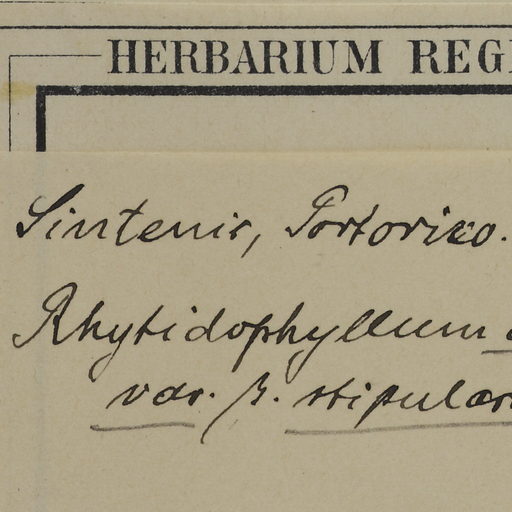 HERBARIUM REGI
Sintenis, Portorico.
Rhytidophyllum
var. β. stipular